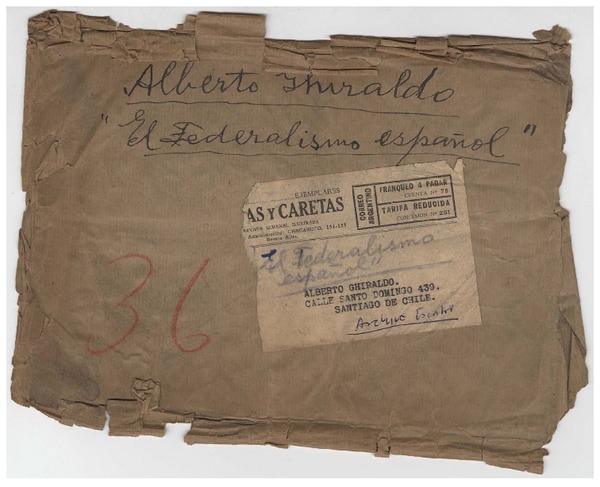 Alberto Ghiraldo
"El Federalismo español"
EJEMPLARES
AS Y CARETAS
REVISTA SEMANAL ILUSTRADA
Administración: CHACABUCO, 151-155
Buenos Aires
CORREO ARGENTINO
FRANQUEO A PAGAR
CUENTA Nº 78
TARIFA REDUCIDA
CONCESION Nº 251
"El Federalismo
español"
ALBERTO GHIRALDO.
CALLE SANTO DOMINGO 439.
SANTIAGO DE CHILE.
36